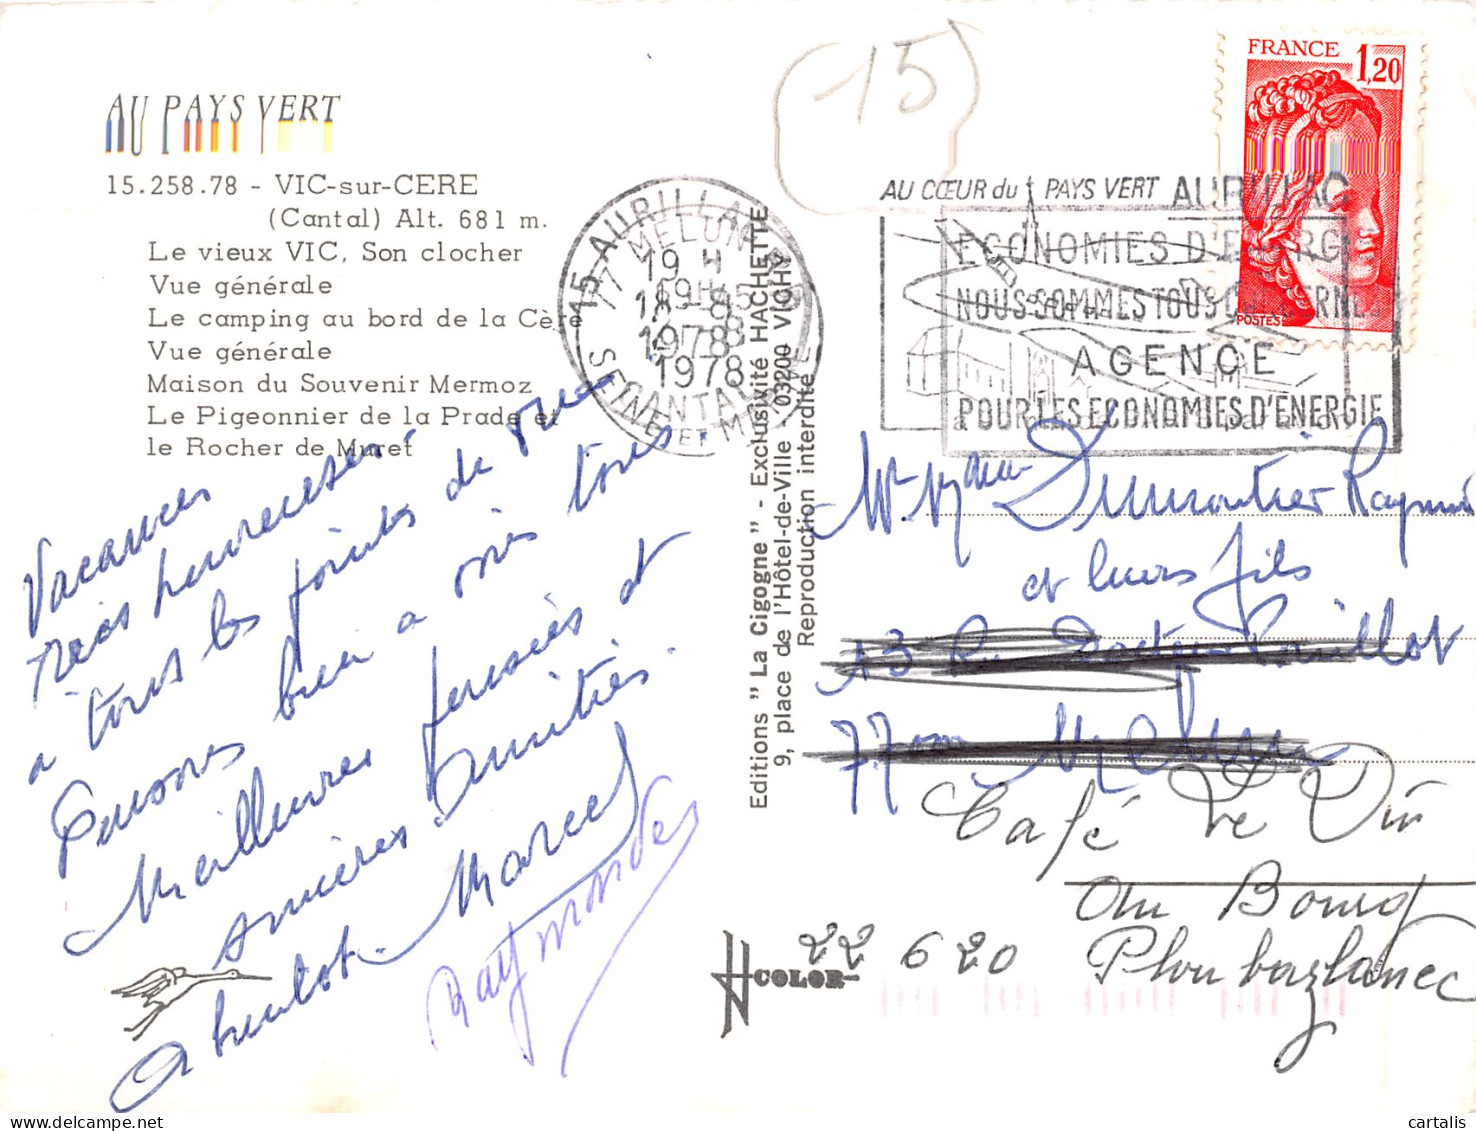 AU PAYS VERT
15.258.78 - VIC-sur-CERE
(Cantal) Alt. 681 m.
Le vieux VIC, Son clocher
Vue générale
Le camping au bord de la Cère
Vue générale
Maison du Souvenir Mermoz
Le Pigeonnier de la Prade et
le Rocher de Muret
Vacances
très heureuses
à tous les points de vue
Pensons bien à vous tous
Meilleures pensées et
sincères Amitiés.
A bientôt. Marcel
Raymonde
Editions "La Cigogne" - Exclusivité HACHETTE
9, place de l'Hôtel-de-Ville - 03200 VICHY
Reproduction interdite
COLOR
(15)
15 AURILLAC
CANTAL
77 MELUN
SEINE ET MARNE
19 H
1978
1978
AU CŒUR du PAYS VERT AURILLAC
ECONOMIES D'ENERGIE
NOUS SOMMES TOUS CONCERNES
AGENCE
POUR LES ECONOMIES D'ENERGIE
FRANCE 1,20
POSTES
Mr. Mme Dumoutier Raymond
et leurs fils
13 R. Docteur Pouillot
77000 Melun
Café Le Dû
au Bourg
22 620 Ploubazlanec
cartalis